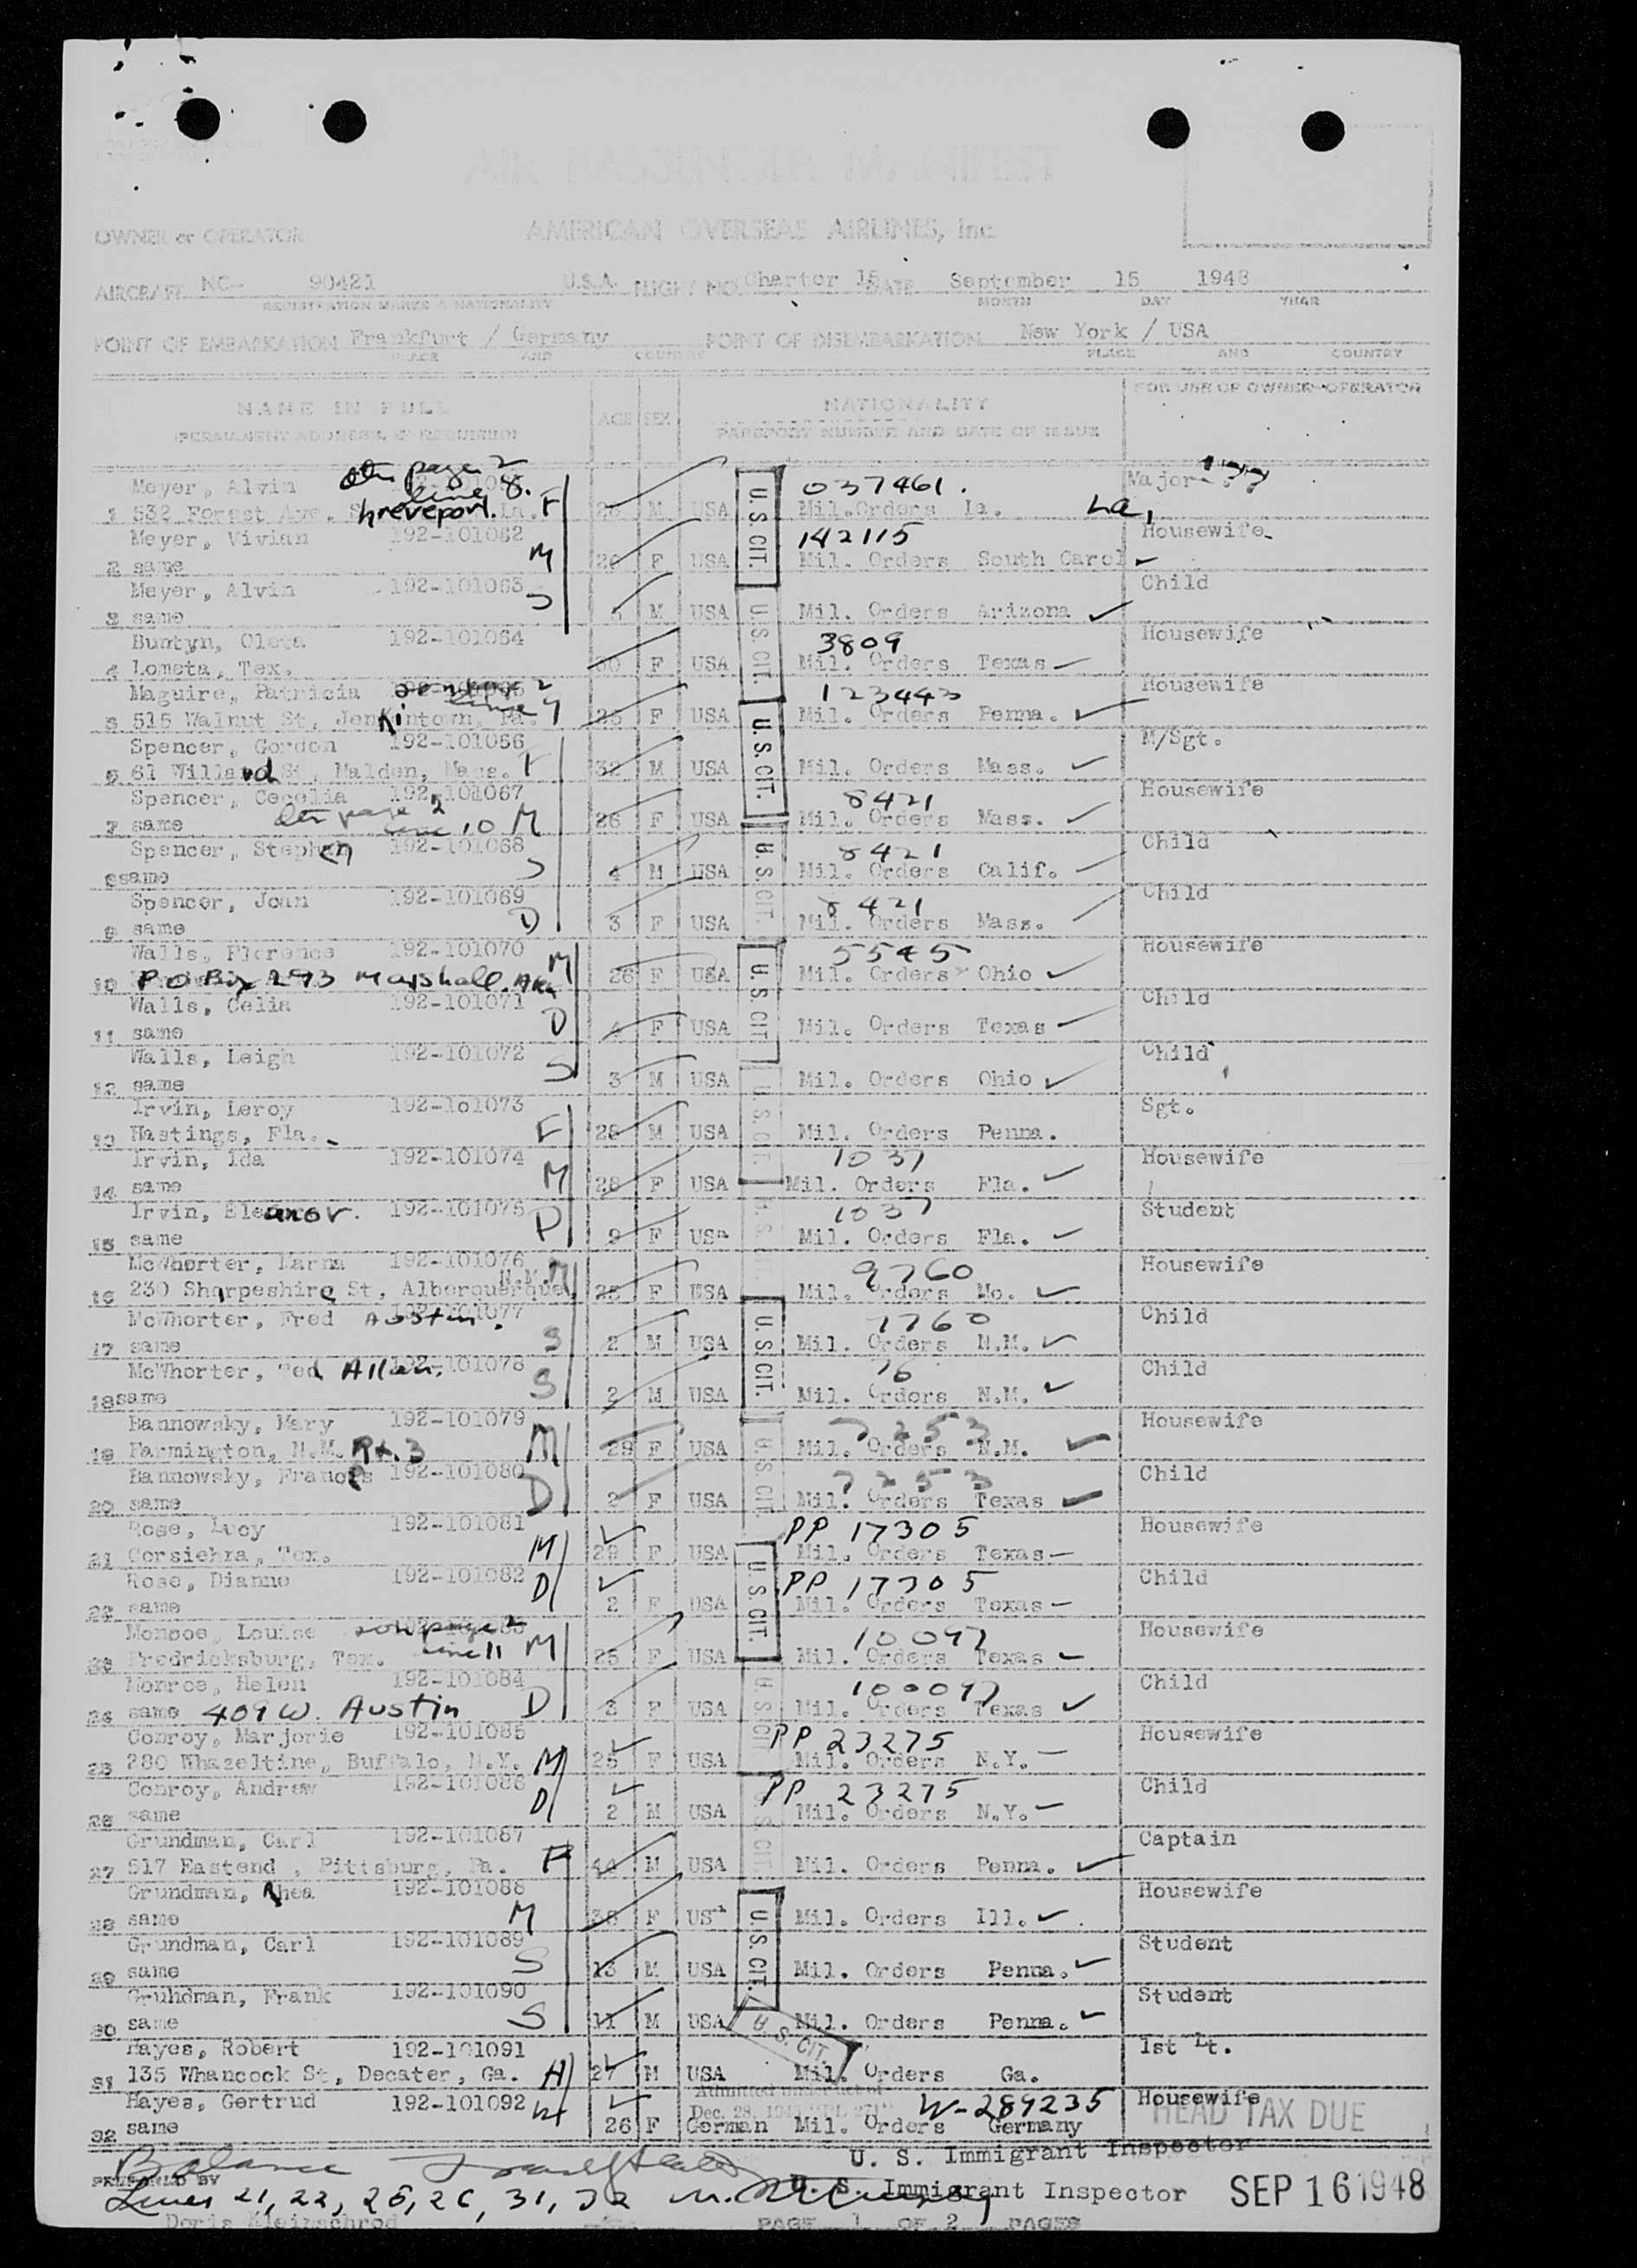 AIR PASSENGER MANIFEST
OWNER or OPERATOR AMERICAN OVERSEAS AIRLINES, Inc
AIRCRAFT NC- 90421 U.S.A. FLIGHT NO. Charter 15 DATE September 15 1948
REGISTRATION MARKS & NATIONALITY MONTH DAY YEAR
POINT OF EMBARKATION Frankfurt / Germany POINT OF DISEMBARKATION New York / USA
PLACE AND COUNTRY PLACE AND COUNTRY
NAME IN FULL AGE SEX NATIONALITY FOR USE OF OWNER-OPERATOR
(PERMANENT ADDRESS, IF REQUIRED) PASSPORT NUMBER AND DATE OF ISSUE
Meyer, Alvin page 2 line 8. 037461. Major
1 532 Forest Ave. Shreveport. La. F M USA Mil. Orders La. La,
Meyer, Vivian 192-101062 142115 Housewife
2 same M 26 F USA Mil. Orders South Carol
Meyer, Alvin 192-101063 Child
3 same S M USA Mil. Orders Arizona
Buntyn, Oleta 192-101064 3809 Housewife
4 Lometa, Tex. 30 F USA Mil. Orders Texas
Maguire, Patricia 123443 Housewife
5 515 Walnut St, Jenkintown, Pa. 25 F USA Mil. Orders Penna.
Spencer, Gordon 192-101066 M/Sgt.
6 61 Willard St, Malden, Mass. F 32 M USA Mil. Orders Mass.
Spencer, Cecelia 192-101067 8421 Housewife
7 same page 2 line 10 M 26 F USA Mil. Orders Mass.
Spencer, Stephen 192-101068 8421 Child
8 same S 4 M USA Mil. Orders Calif.
Spencer, Joan 192-101069 8421 Child
9 same D 3 F USA Mil. Orders Mass.
Walls, Florence 192-101070 M 5545 Housewife
10 P O Box 293 Marshall. Ark 26 F USA Mil. Orders Ohio
Walls, Celia 192-101071 Child
11 same D 4 F USA Mil. Orders Texas
Walls, Leigh 192-101072 Child
12 same S 3 M USA Mil. Orders Ohio
Irvin, Leroy 192-101073 Sgt.
13 Hastings, Fla. F 28 M USA Mil. Orders Penna.
Irvin, Ida 192-101074 1037 Housewife
14 same M 28 F USA Mil. Orders Fla.
Irvin, Eleanor. 192-101075 1037 Student
15 same D 9 F USA Mil. Orders Fla.
McWhorter, 192-101076 N.M. M 9760 Housewife
16 230 Sharpeshire St, Alberquerque, 25 F USA Mil. Orders Mo.
McWhorter, Fred Austin. 1077 Child
17 same S 2 M USA Mil. Orders N.M.
McWhorter, Ted Allan. 101078 76 Child
18 same S 2 M USA Mil. Orders N.M.
Bannowsky, Mary 192-101079 7253 Housewife
19 Farmington, N.M. Rt. 3 M 29 F USA Mil. Orders N.M.
Bannowsky, Frances 192-101080 7253 Child
20 same D 2 F USA Mil. Orders Texas
Rose, Lucy 192-101081 PP 17305 Housewife
21 Corsiehra, Tex. M 29 F USA Mil. Orders Texas
Rose, Dianne 192-101082 PP 17305 Child
22 same D 2 F USA Mil. Orders Texas
Monroe, Louise page 2 10097 Housewife
23 Fredricksburg, Tex. line 11 M 25 F USA Mil. Orders Texas
Monroe, Helen 192-101084 Child
24 same 409 W. Austin D F USA Mil. Orders Texas
Conroy, Marjorie 192-101085 PP 23275 Housewife
25 280 Whazeltine, Buffalo, N.Y. M 25 F USA Mil. Orders N.Y.
Conroy, Andrew 192-101086 PP 23275 Child
26 same D 2 M USA Mil. Orders N.Y.
Grundman, Carl 192-101087 Captain
27 517 Eastend, Pittsburg, Pa. F 44 M USA Mil. Orders Penna.
Grundman, Rhea 192-101088 Housewife
28 same M 38 F USA Mil. Orders Ill.
Grundman, Carl 192-101089 Student
29 same S 13 M USA Mil. Orders Penna.
Gruhdman, Frank 192-101090 Student
30 same S 11 M USA Mil. Orders Penna.
Hayes, Robert 192-101091 1st Lt.
31 135 Whancock St, Decater, Ga. H 27 M USA Mil. Orders Ga.
Hayes, Gertrud 192-101092 W Admitted under act of Dec. 28, W-289235 Housewife
32 same 26 F German Mil. Orders Germany HEAD TAX DUE
U.S. CIT.
U.S. CIT.
U.S. CIT.
U.S. CIT.
U.S. CIT.
U.S. CIT.
U.S. CIT.
U.S. CIT.
U.S. CIT.
U.S. CIT.
U.S. CIT.
U.S. CIT.
U. S. Immigrant Inspector
Balance
PREPARED BY
Lines 21, 22, 25, 26, 31, 32 U. S. Immigrant Inspector SEP 16 1948
Doris Kleinschrod
PAGE 1 OF 2 PAGES